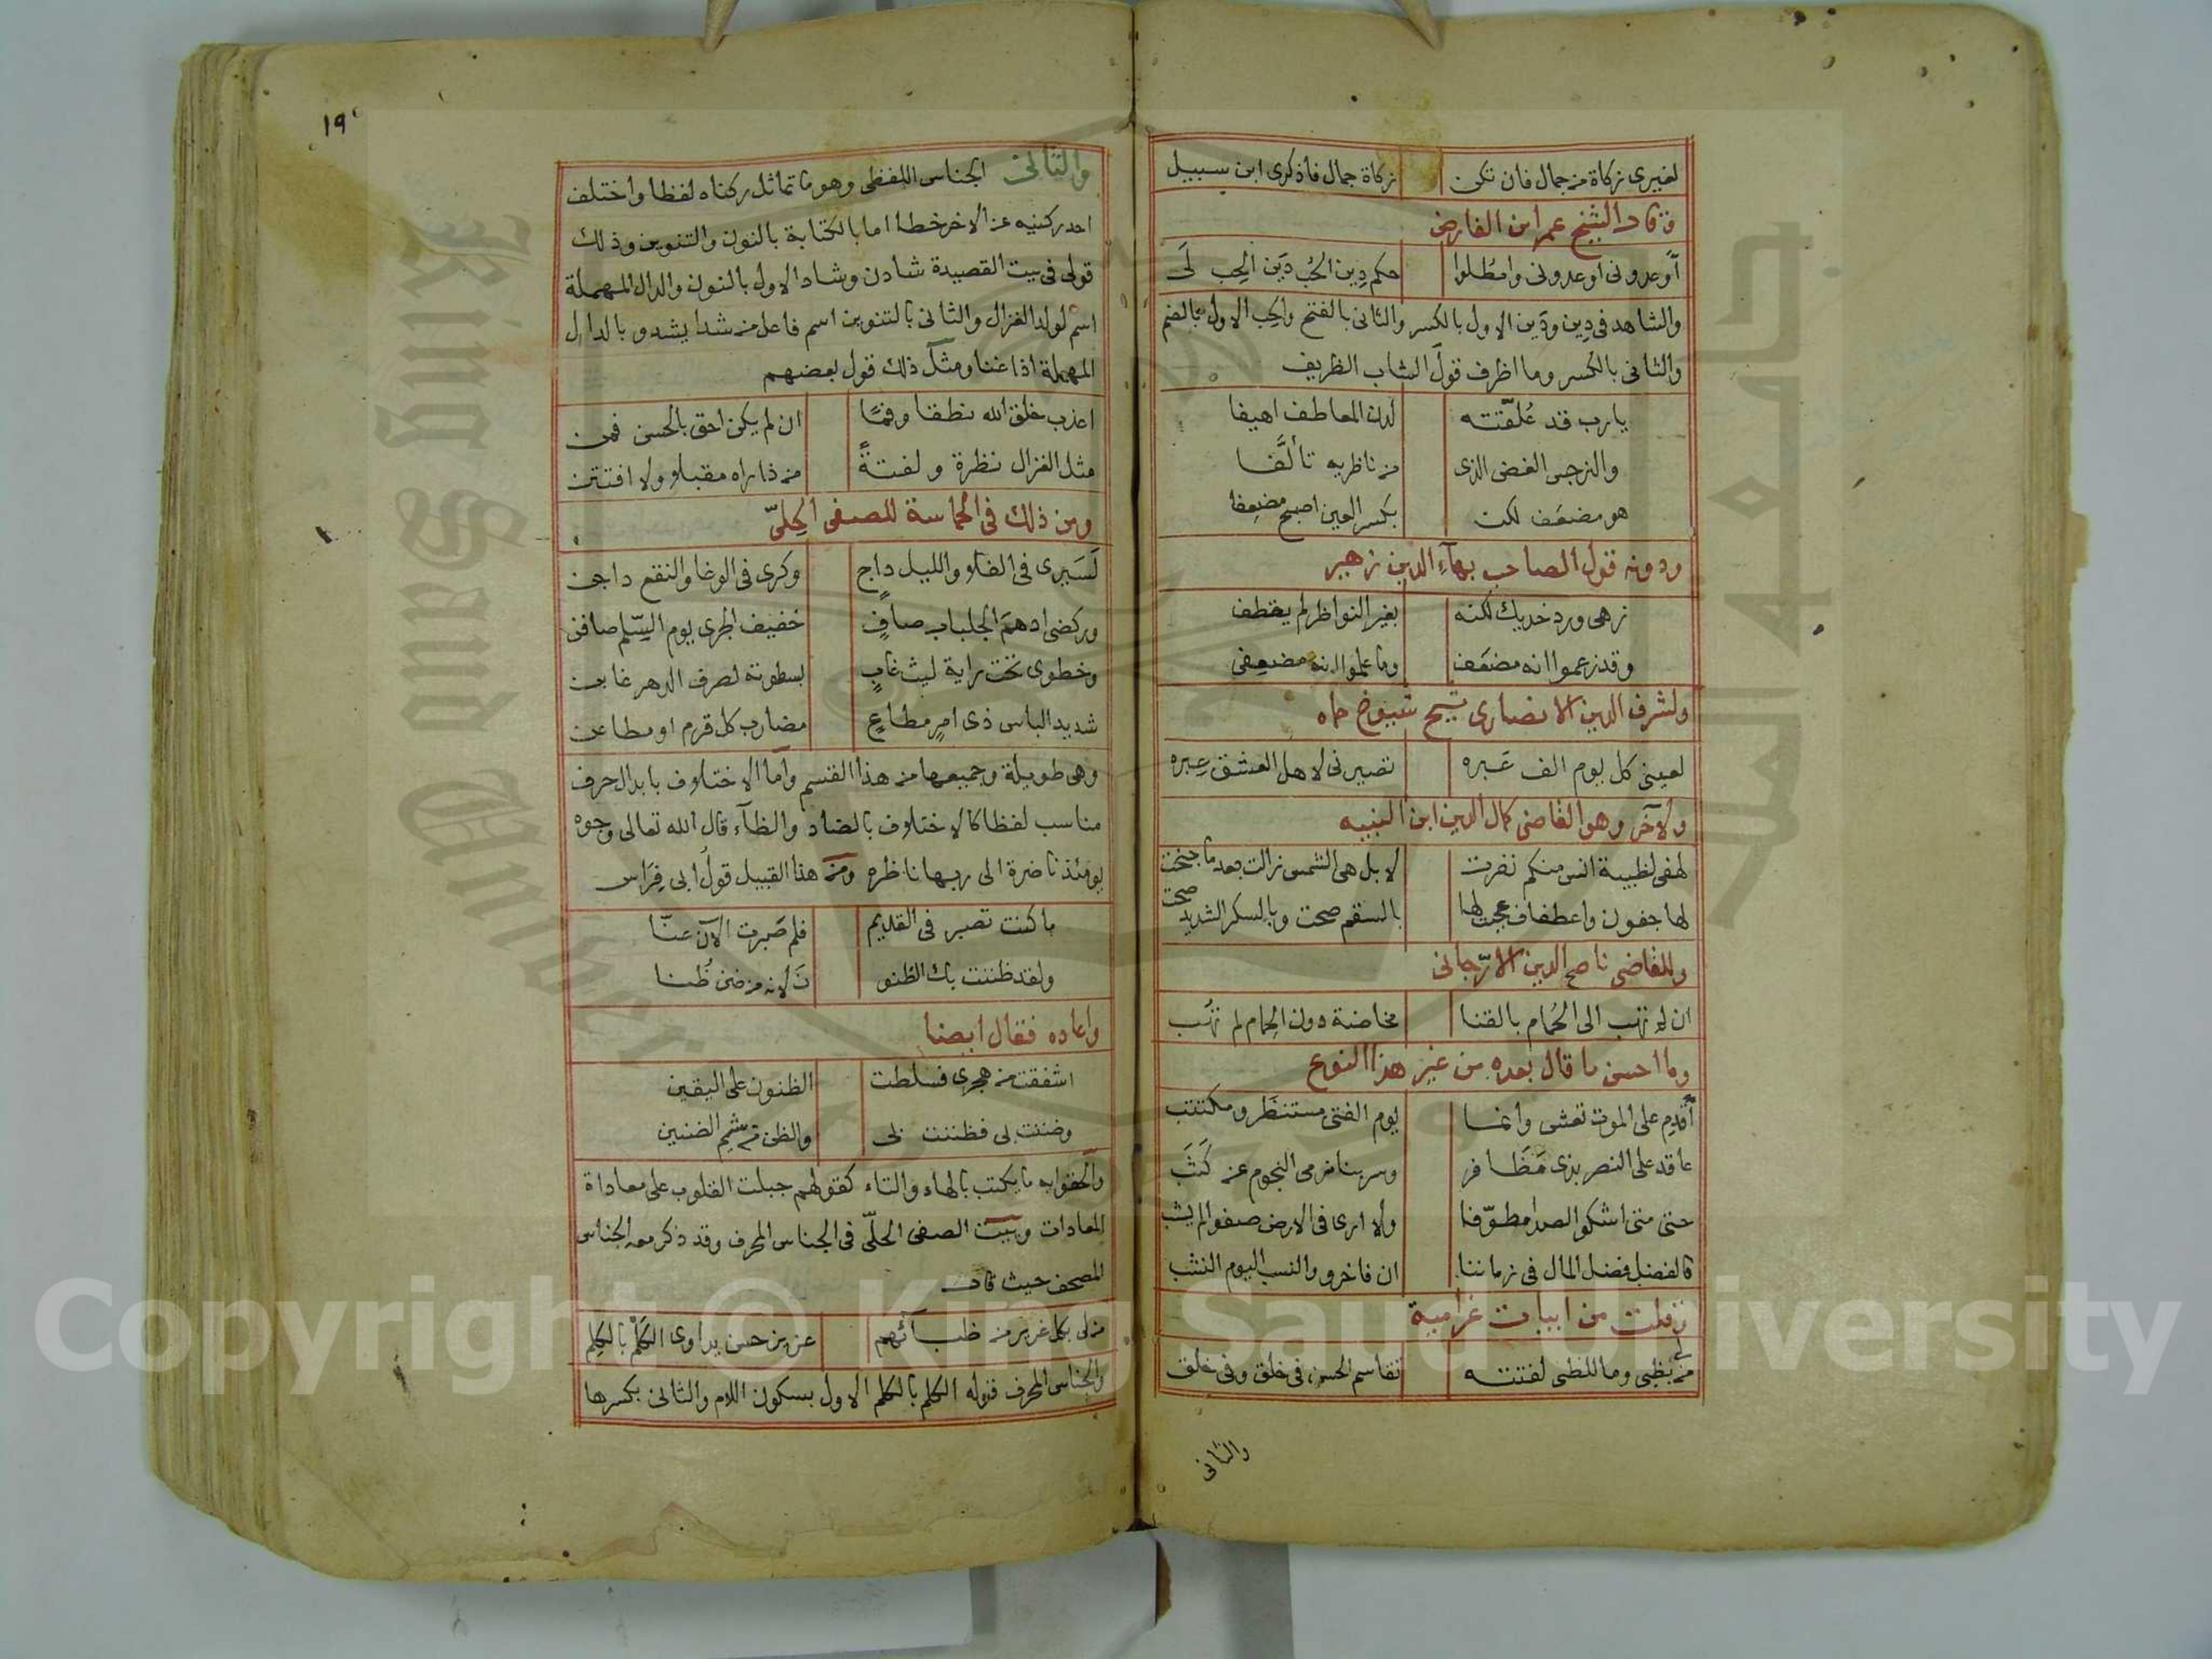 لغيرى زكاة من جمال فان تكن زكاة جمال فاذكرى ابن سبيل
وقال الشيخ عمر ابن الفارض
أوعدونى اوعدونى وامطلوا حكم دِين الحُب دَين الحِب لَى
والشاهد فى دِين ودَين الاول بالكسر والثانى بالفتح والحِب الاول بالضم
والثانى بالكسر وما اظرف قول الشاب الظريف
يارب قد عُلّقته لدن المعاطف اهيفا
والنرجس الغض الذى من ناظريه تألَّفا
هو مضعَف لكن بكسر العين اصبح مضعِفا
ودونه قول الصاحب بهآء الدين زهير
زهى ورد خديك لكنه بغير النواظر لم يقطف
وقد زعموا انه مضعَف وما علموا انه مضعِفى
ولشرف الدين الانصارى شيخ شيوخ حماه
لعينى كل يوم الف عَبره تصيرنى لاهل العشق عِبره
ولآخر وهو القاضى كمال الدين ابن النبيه
لهفى لظبية انس منكم نفرت لا بل هى الشمس زالت بعد ما جنحت
لها جفون واعطاف عجبت لها بالسقم صحت وبالسكر الشديد صحت
وللقاضى ناصح الدين الارّجانى
ان لم تهب الى الحُمام بالقنا مخاضة دون الحِمام لم تهُب
وما احسن ما قال بعده من غير هذا النوع
أقدِم على الموت تعشى وانما يوم الفتى مستنظَر ومكتتب
عاقد على النصر بذى مَظَافر وسر بنا نرمى النجوم عن كَثَب
حتى متى اشكو الصدا مطوّفا ولا ارى فى الارض صفوا لم يشب
فالفضل فضل المال فى زماننا ان فاخرو والنسب اليوم النشب
وقلت من ابيات غرامية
من لى بظبى وما للظبى لفتته تقاسم الحسن فى خلق وفى خلق
والثانى
١٩
والثانى الجناس اللفظى وهو ما تماثل ركناه لفظا واختلف
احد ركنيه عن الاخر خطا اما بالكتابة بالنون والتنوين وذلك
قولى فى بيت القصيدة شادن وشاد الاول بالنون والدال المهملة
اسم لولد الغزال والثانى بالتنوين اسم فاعل من شدا يشدو بالدال
المهملة اذا غنا ومثل ذلك قول بعضهم
اعذب خلق الله نطقا وفمًا ان لم يكن احق بالحسن فمن
مثل الغزال نظرة ولفتةً من ذا راه مقبلا ولا افتتن
ومن ذلك فى الحماسة للصفى الحِلىّ
لَسَيرى فى الفلا والليل داجٍ وكرى فى الوغا والنقع داجن
وركضى ادهم الجلباب صافٍ خفيف الجرى يوم السِّلم صافن
وخطوى تحت راية ليث غابٍ بسطوته لصرف الدهر غابن
شديد الباس ذى امرٍ مطاعٍ مضارب كل قرم او مطاعن
وهى طويلة وجميعها من هذا القسم وآما الاختلاف بابدال حرف
مناسب لفظا كالاختلاف بالضاد والظآء قال الله تعالى وجوه
يومئذ ناضرة الى ربها ناظره ومن هذا القبيل قول ابى فِرَاس
ما كنت تصبر فى القديم فلم صَبرت الآن عنّا
ولقد ظننت بك الظنو نَ لانه من ضن ظنا
واعاده فقال ايضا
اشفقت من هجرى فسلطت الظنون على اليقين
وضننت بى فظننت بى والظن من شيم الضنين
وآلحقوا به ما يكتب بالهاء والتاء كقولهم جبلت القلوب على معاداة
المعادات وبيت الصفى الحلّى فى الجناس المحرف وقد ذكر معه الجناس
المصحف حيث قال
من لى بكل غرير من ظبآئهم عزيز حسن يداوى الكَلْم بالكِلم
والجناس المحرف قوله الكلم بالكلم الاول بسكون اللام والثانى بكسرها
Copyright © King Saud University